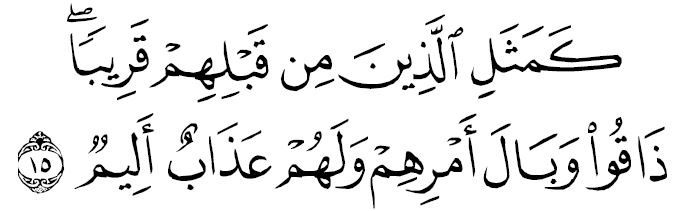 كَمَثَلِ ٱلَّذِينَ مِن قَبۡلِهِمۡ قَرِيبٗاۖ
ذَاقُواْ وَبَالَ أَمۡرِهِمۡ وَلَهُمۡ عَذَابٌ أَلِيمٞ ١٥